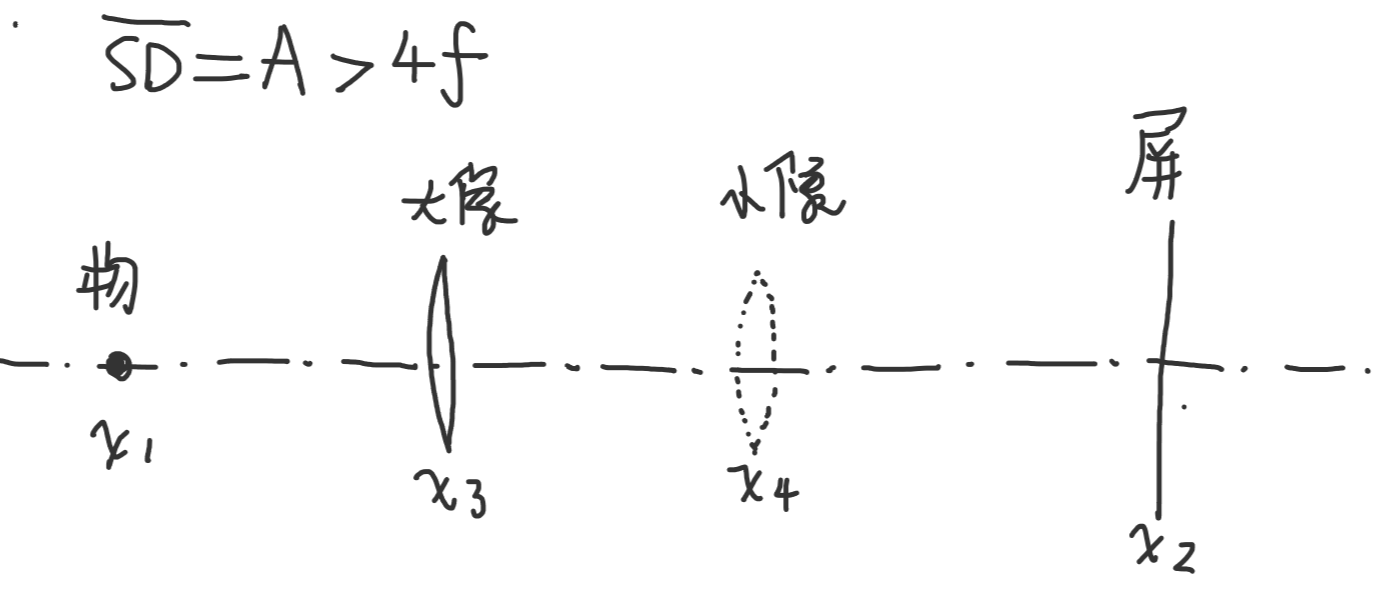 SD=A>4f
屏
大像 小像
物
x1 x3 x4 x2